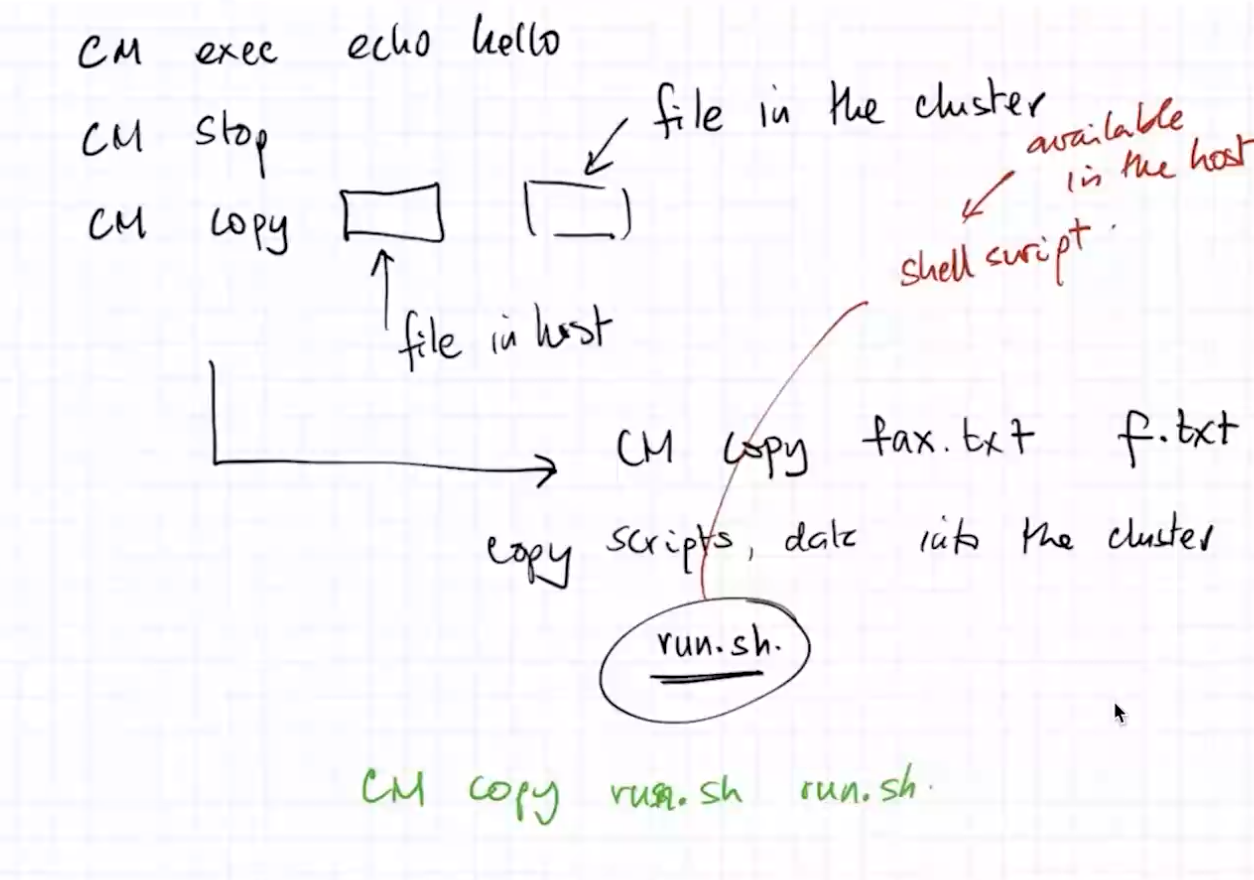 CM exec echo hello
file in the cluster
available
in the host
CM stop
CM copy
shell script.
file in host
CM copy fax.txt f.txt
copy scripts, data into the cluster
run.sh.
CM copy run.sh run.sh.